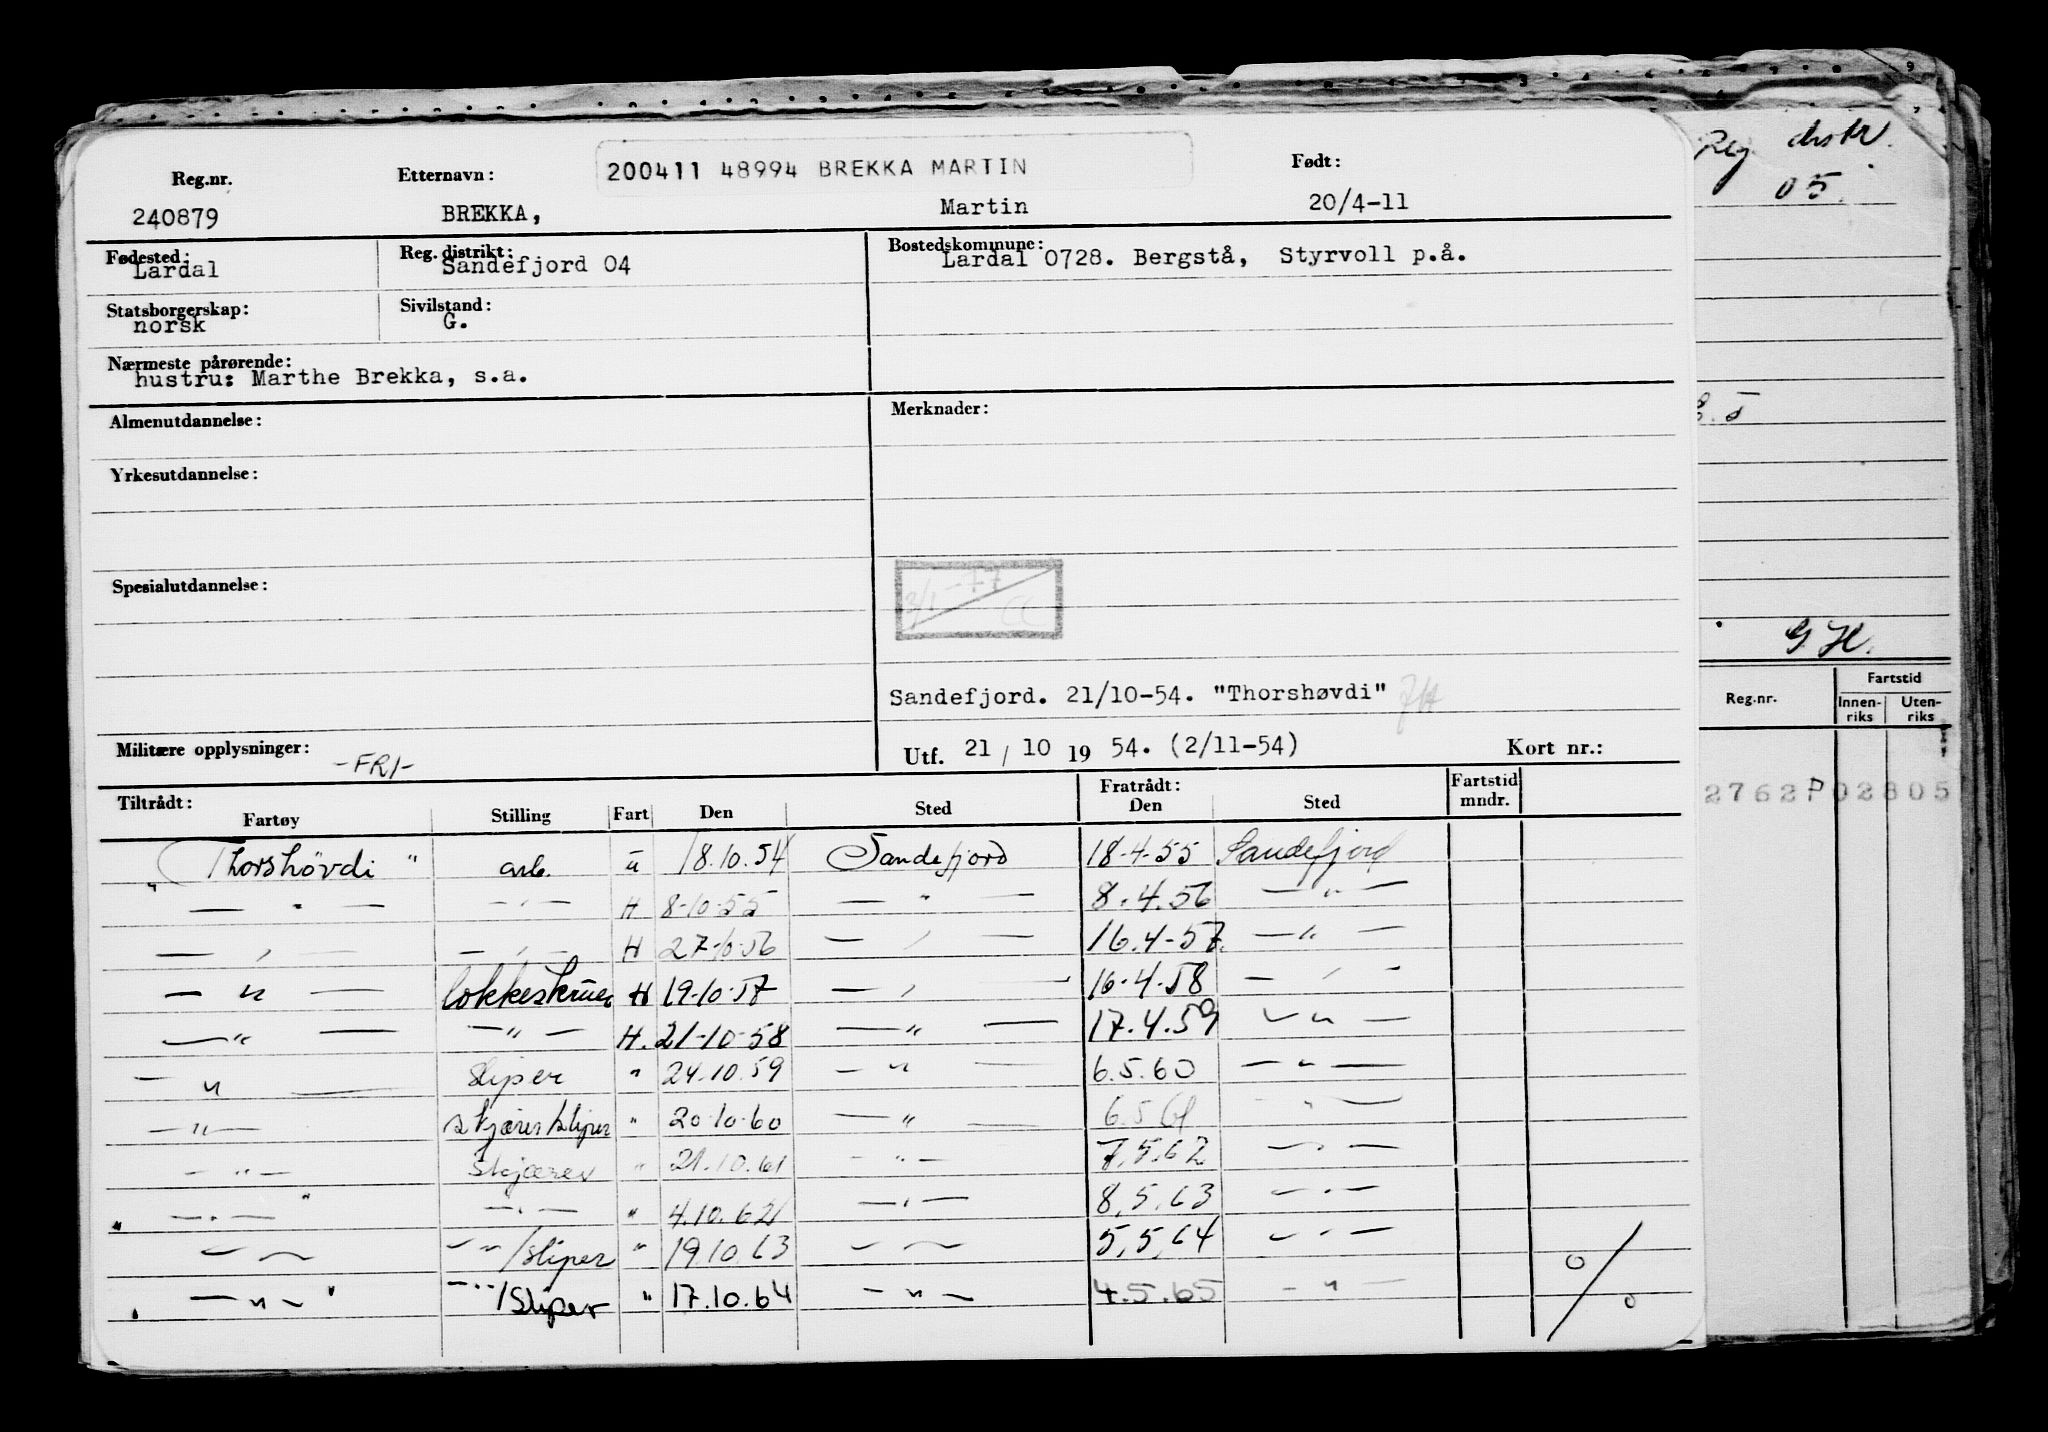 200411 48994 BREKKA MARTIN
Reg.nr. Etternavn: Født:
240879 BREKKA, Martin 20/4-11
Fødested: Reg. distrikt: Bostedskommune:
Lardal Sandefjord 04 Lardal 0728. Bergstå, Styrvoll p.å.
Statsborgerskap: Sivilstand:
norsk G.
Nærmeste pårørende:
hustru: Marthe Brekka, s.a.
Almenutdannelse: Merknader:
Yrkesutdannelse:
3/1-77
CC
Spesialutdannelse:
Sandefjord. 21/10-54. "Thorshøvdi"
Militære opplysninger: -FRI- Utf. 21/10 1954. (2/11-54) Kort nr.:
Tiltrådt: Fratrådt: Fartstid
Fartøy Stilling Fart Den Sted Den Sted mndr.
"Thorshövdi" arb. u 18.10.54 Sandefjord 18-4-55 Sandefjord
— " — — " — H 8-10-55 — " — 8.4.56 — " —
— " — — " — H 27-10-56 — " — 16.4-57. — " —
— " — lokkeskruer H 19-10-57 — " — 16-4-58 — " —
— " — — " — H. 21-10-58 — " — 17.4.59 — " —
— " — Sliper " 24.10.59 — " — 6.5.60 — " —
— " — skjærer/sliper " 20-10-60 — " — 6.5.61 — " —
— " — Skjærer " 21.10.61 — " — 7.5.62 — " —
" — " — " — " — " 4.10.62 — " — 8.5.63 — " —
— " — — " —/sliper " 19.10.63 — " — 5.5.64 — " —
" — " — " — " —/Sliper " 17.10.64 — " — 4.5.65 — " —
o/o
Reg distr.
05.
G.H.
Reg.nr. Fartstid
Innen-riks Uten-riks
2762P02805